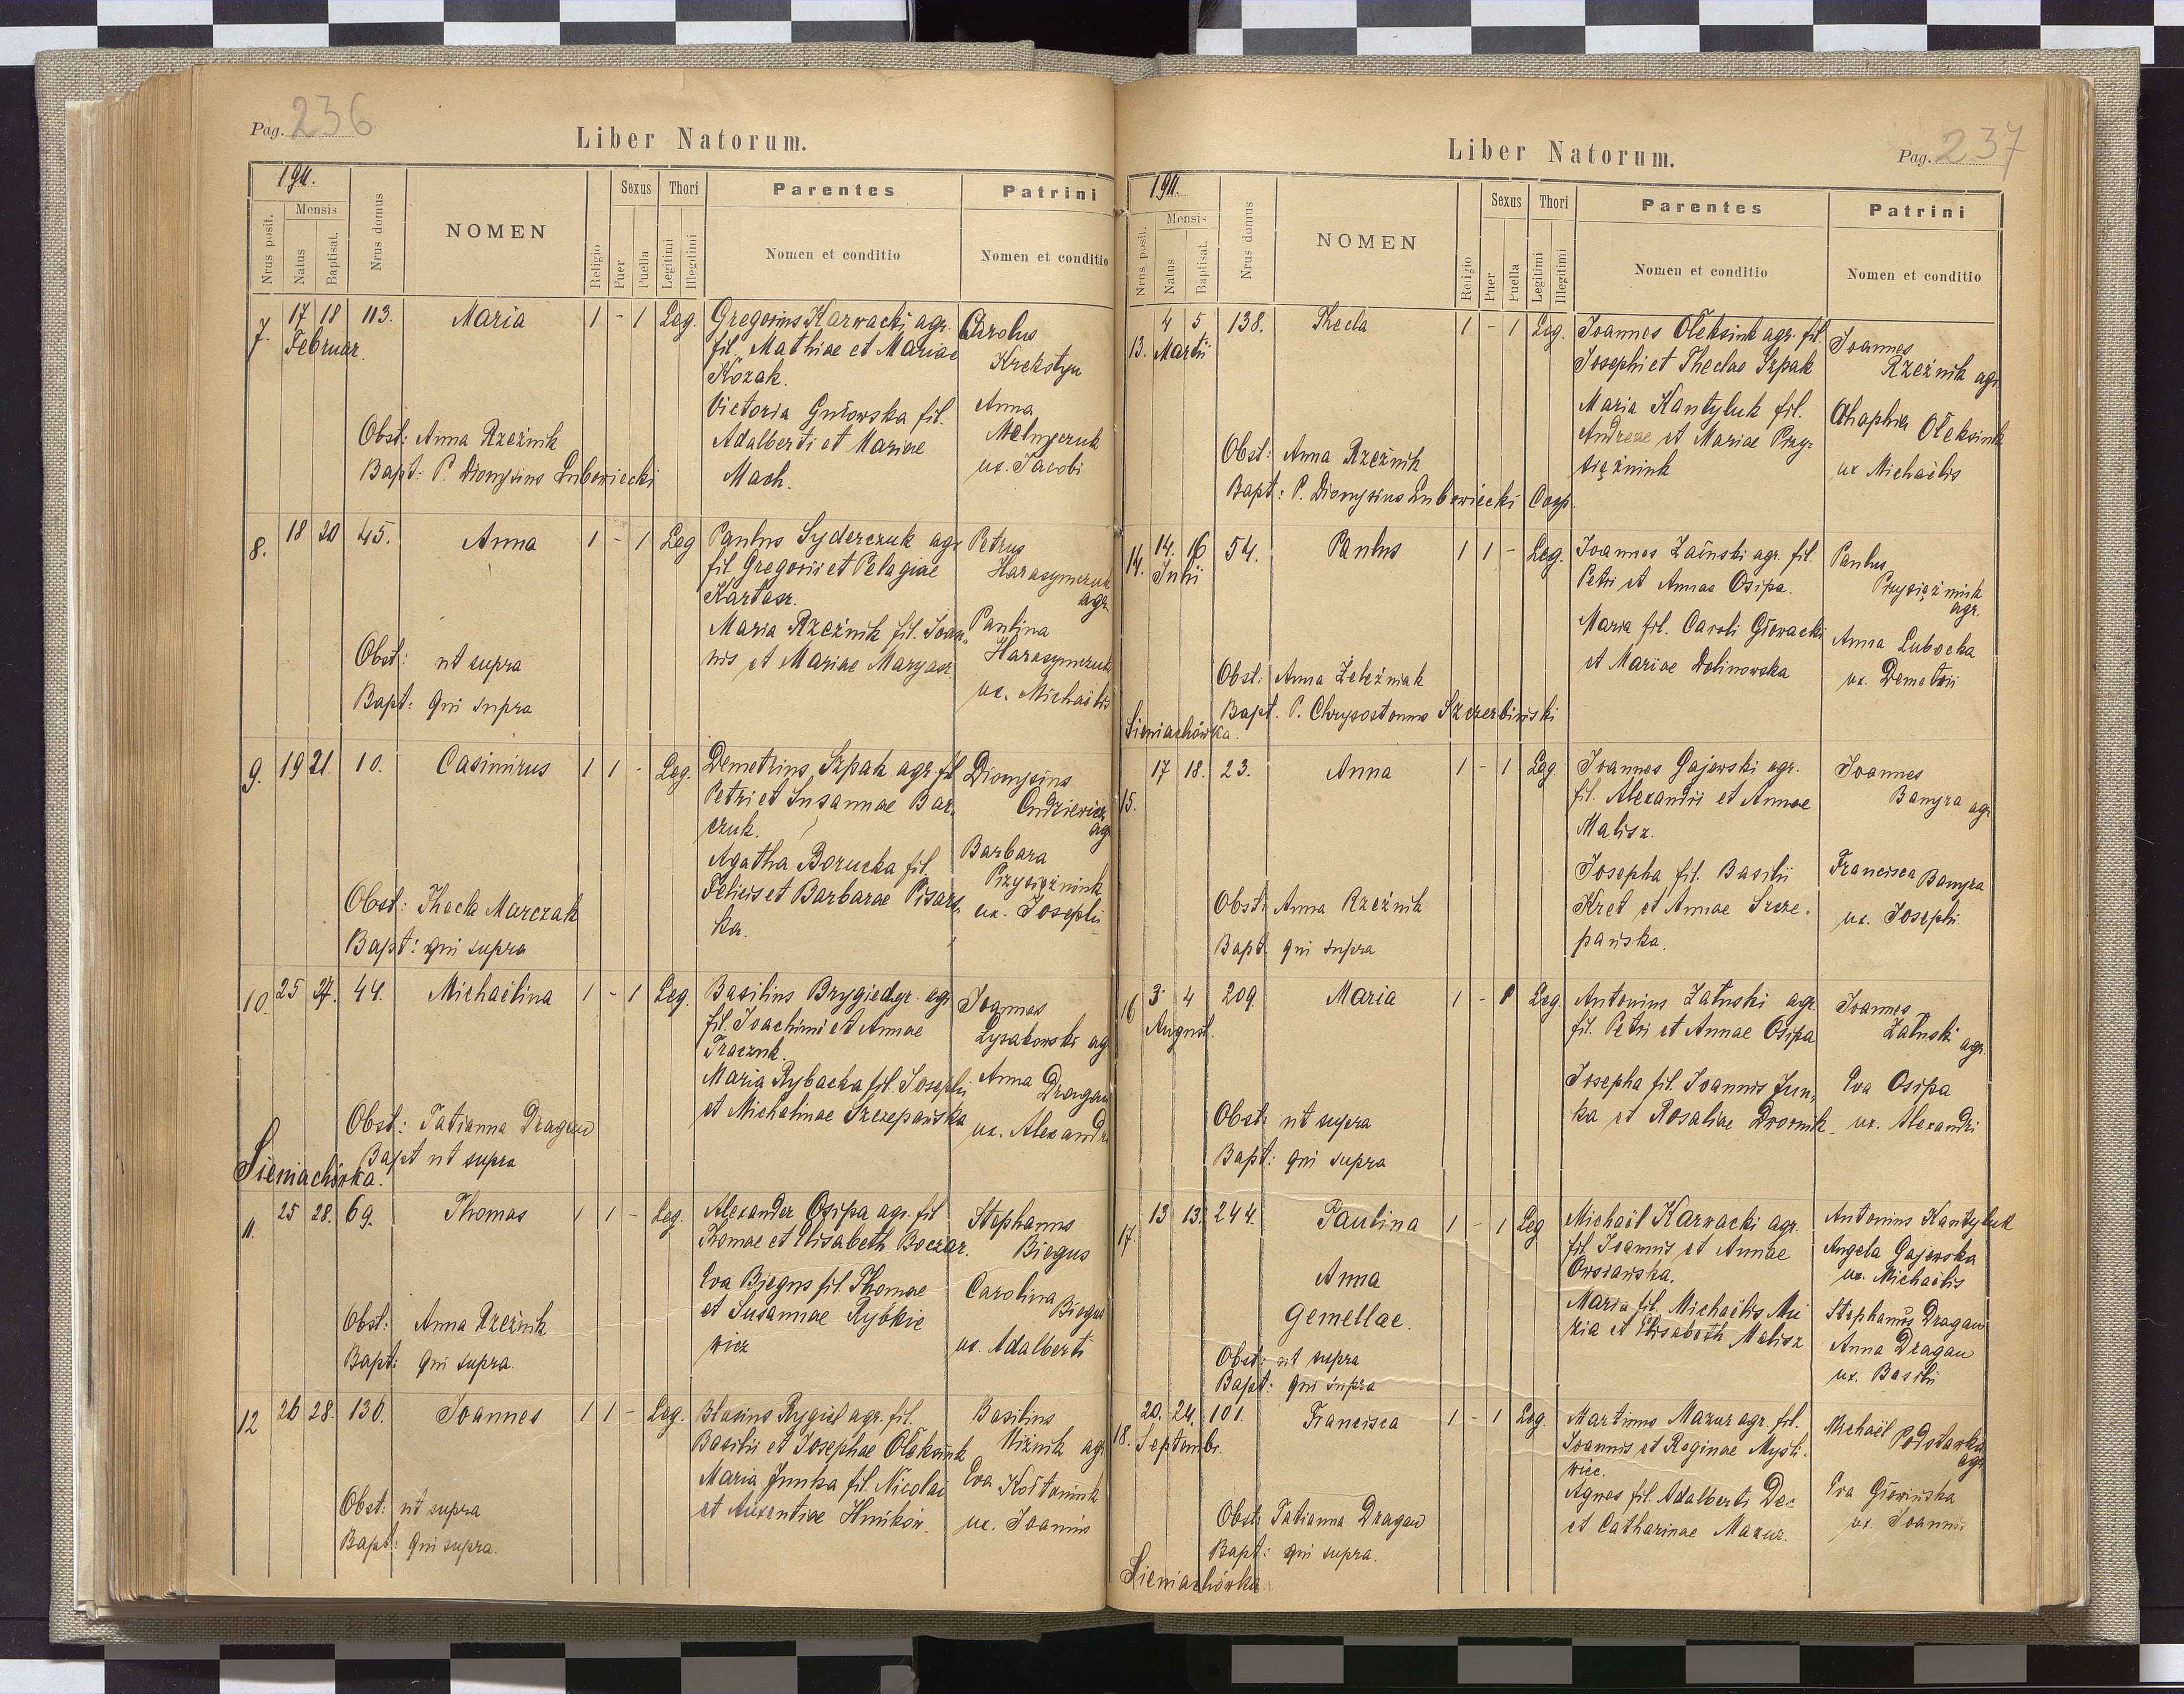 Pag. 236
Liber Natorum.
1911.
Nrus posit.
Mensis
Natus
Baptisat.
Nrus domus
NOMEN
Religio
Sexus
Puer
Puella
Thori
Legitimi
Illegitimi
Parentes
Nomen et conditio
Patrini
Nomen et conditio
7. 17 18 113. Maria 1 - 1 Leg.
Februar.
Gregorius Karwacki agr.
fil. Mathiae et Mariae
Kozak.
Victoria Gutowska fil.
Adalberti et Mariae
Mach.
Carolus
Krekotyn
Anna
Melnyczuk
ux. Jacobi
Obst: Anna Rzeźnik
Bapt: P. Dionysius Lubowiecki
8. 18 20 45. Anna 1 - 1 Leg
Paulus Syderczuk agr
fil. Gregorii et Pelagiae
Kartasz.
Maria Rzeźnik fil. Joan-
nis et Mariae Maryasz.
Petrus
Harasymczuk
agr.
Paulina
Harasymczuk
ux. Michaëlis
Obst: ut supra
Bapt: qui supra
9. 19 21. 10. Casimirus 1 1 - Leg.
Demetrius Szpak agr. fil
Petri et Susannae Bar-
czuk.
Agatha Borucka fil.
Felicis et Barbarae Pisars-
ka.
Dionysius
Ondziewicz
agr
Barbara
Przysiężniuk
ux. Josephi
Obst: Thecla Marczak
Bapt: qui supra
10. 25 27. 44. Michaëlina 1 - 1 Leg.
Basilius Brygiedyr. agr.
fil. Joachimi et Annae
Traczuk.
Maria Rybacka fil. Josephi
et Michalinae Szczepańska
Joannes
Łysakowski agr
Anna Dragan
ux. Alexandri
Obst: Tatianna Dragan
Bapt ut supra
Sieniachówka.
11. 25 28. 69. Thomas 1 1 - Leg.
Alexander Osipa agr. fil
Thomae et Elisabeth Boczar.
Eva Biegus fil. Thomae
et Susannae Rybkie
wicz
Stephanus
Biegus
Carolina
Biegus
ux. Adalberti
Obst: Anna Rzeźnik
Bapt: qui supra.
12 26 28. 130. Joannes 1 1 - Leg.
Blasius Rygiel agr. fil.
Basilii et Josephae Oleksiuk
Maria Junka fil. Nicolai
et Auxentiae Hnïków.
Basilius
Niżnik agr.
Eva Kołtoniuk
ux. Joannis
Obst: ut supra
Bapt: qui supra.
Liber Natorum.
Pag. 237
1911.
Nrus posit.
Mensis
Natus
Baptisat.
Nrus domus
NOMEN
Religio
Sexus
Puer
Puella
Thori
Legitimi
Illegitimi
Parentes
Nomen et conditio
Patrini
Nomen et conditio
13. 4 5 138. Thecla 1 - 1 Leg.
Martii
Joannes Oleksiuk agr. fil.
Josephi et Theclae Szpak
Maria Kantyluk fil.
Andreae et Mariae Przy-
siężniuk
Joannes
Rzeźnik agr
Ahaphia Oleksiuk
ux Michaëlis
Obst: Anna Rzeźnik
Bapt: P. Dionysius Lubowiecki Coop.
14. 14. 16 54. Paulus 1 1 - Leg.
Julii
Joannes Załuski agr. fil.
Petri et Annae Osipa.
Maria fil. Caroli Głowacki
et Mariae Dolinowska
Paulus
Przysiężniuk
agr.
Anna Lubocka
ux. Demetrii
Obst: Anna Żeleźniak
Bapt. P. Chrysostomus Szczerbiński
Sieniachówka.
15. 17 18. 23. Anna 1 - 1 Leg
Joannes Gajewski agr.
fil. Alexandri et Annae
Malisz.
Josepha fil. Basilii
Kret et Annae Szcze-
pańska.
Joannes
Banyra agr
Francisca Banyra
ux. Josephi
Obst: Anna Rzeźnik
Bapt. qui supra
16 3 4 209. Maria 1 - 1 Leg
August.
Antonius Załuski agr.
fil. Petri et Annae Osipa
Josepha fil. Joannis Jun-
ka et Rosaliae Dwornik
Joannes
Załuski agr.
Eva Osipa
ux. Alexandri
Obst: ut supra
Bapt: qui supra
17. 13 13. 244. Paulina 1 - 1 Leg
Anna
Gemellae.
Michaël Karwacki agr.
fil. Joannis et Annae
Owsiańska.
Maria fil. Michaëlis Mu
zia et Elisabeth Malisz
Antonius Kantyluk
Angela Gajewska
ux. Michaëlis
Stephanus Dragan
Anna Dragan
ux. Basilii
Obst: ut supra
Bapt: qui supra
18. 20. 24. 101. Francisca 1 - 1 Leg.
Septembr.
Martinus Mazur agr. fil.
Joannis et Reginae Myśli-
wiec.
Agnes fil. Adalberti Dec
et Catharinae Mazur.
Michaël Podstawka
agr.
Eva Głowińska
ux. Joannis
Obst: Tatianna Dragan
Bapt: qui supra.
Sieniachówka